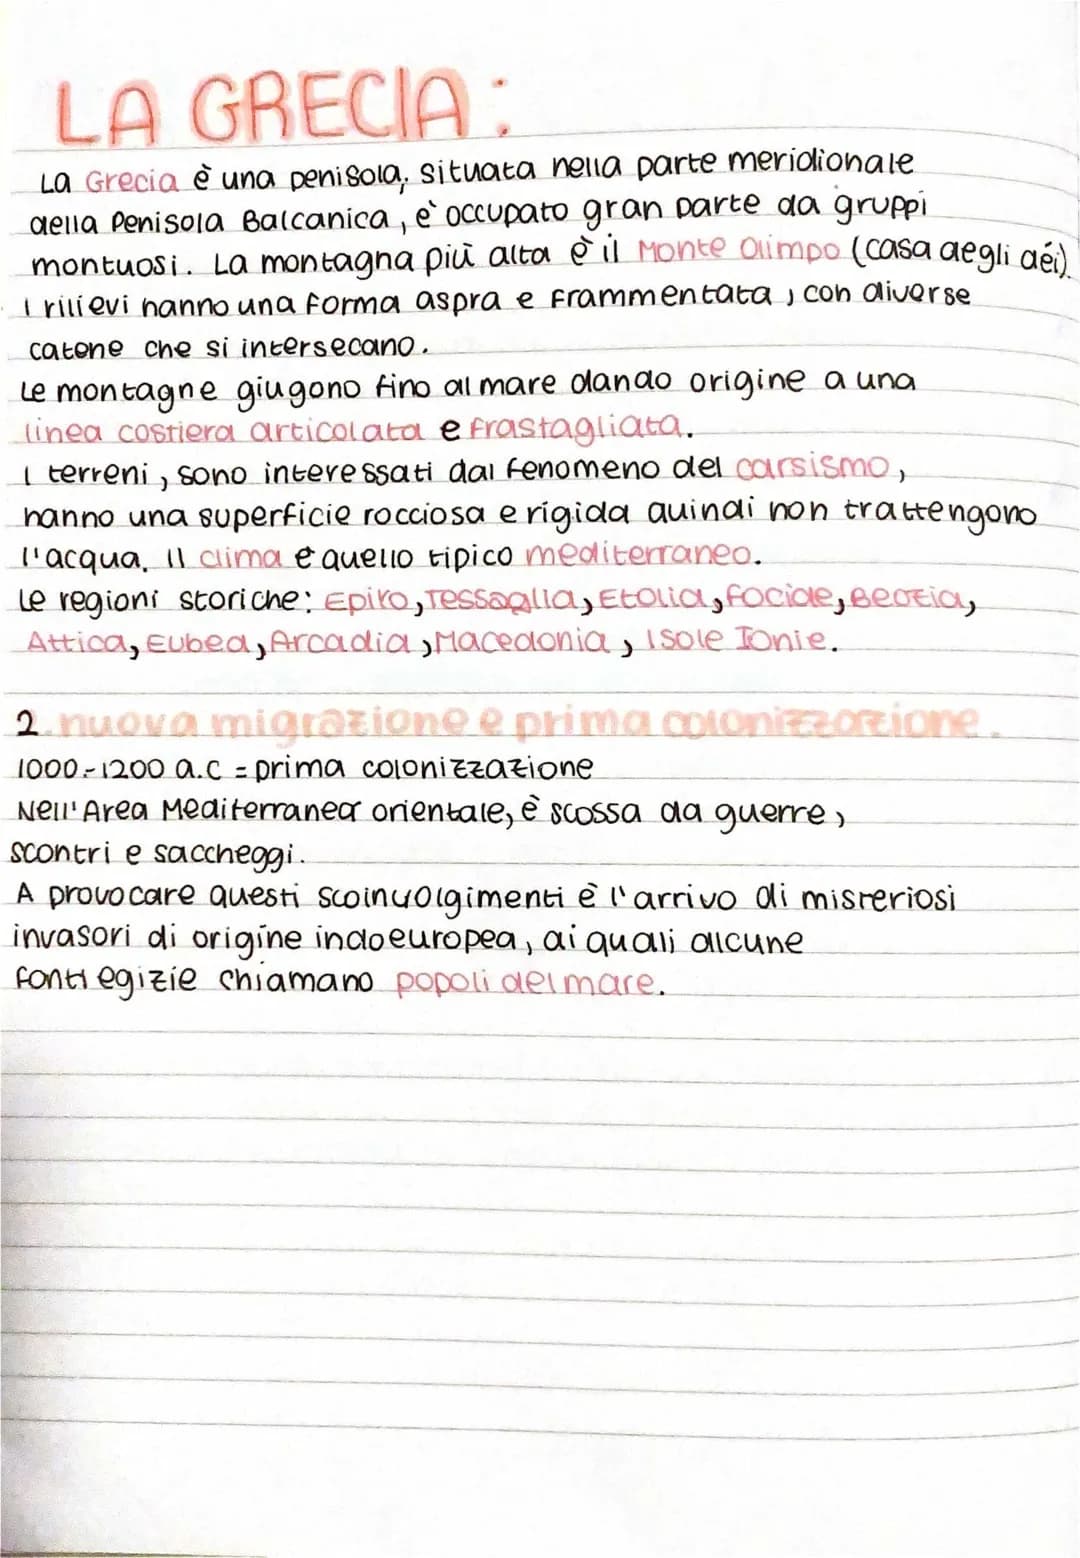 LA GRECIA:
La Grecia è una penisola, situata nella parte meridionale
della Penisola Balcanica, è occupato gran parte da gruppi
montuosi. La montagna più alta è il Monte Olimpo (casa degli déi).
I rilievi hanno una forma aspra e frammentata, con diverse
catene che si intersecano.
Le montagne giugono fino al mare dando origine a una
linea costiera articolata e frastagliata.
I terreni, sono interessati dal fenomeno del carsismo,
hanno una superficie rocciosa e rigida quindi non trattengono
l'acqua. Il clima è quello tipico mediterraneo.
Le regioni storiche: Epiro, Tessaglia, Etolia, Focide, Beozia,
Attica, Eubea, Arcadia, Macedonia, Isole Ionie.
2. nuova migrazione e prima colonizzazione.
1000-1200 a.C = prima colonizzazione
Nell'Area Mediterranea orientale, è scossa da guerre,
scontri e saccheggi.
A provocare questi scoinvolgimenti è l'arrivo di misteriosi
invasori di origine indoeuropea, ai quali alcune
fonti egizie chiamano popoli del mare.